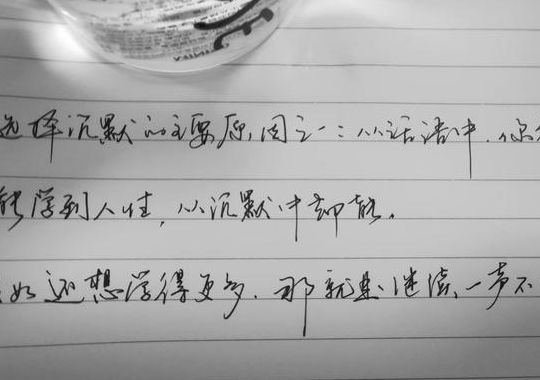 选择沉默的主要原因之一:从话语中,你
能学到人性,从沉默中却能。
如还想学得更多,那就要继续一声不